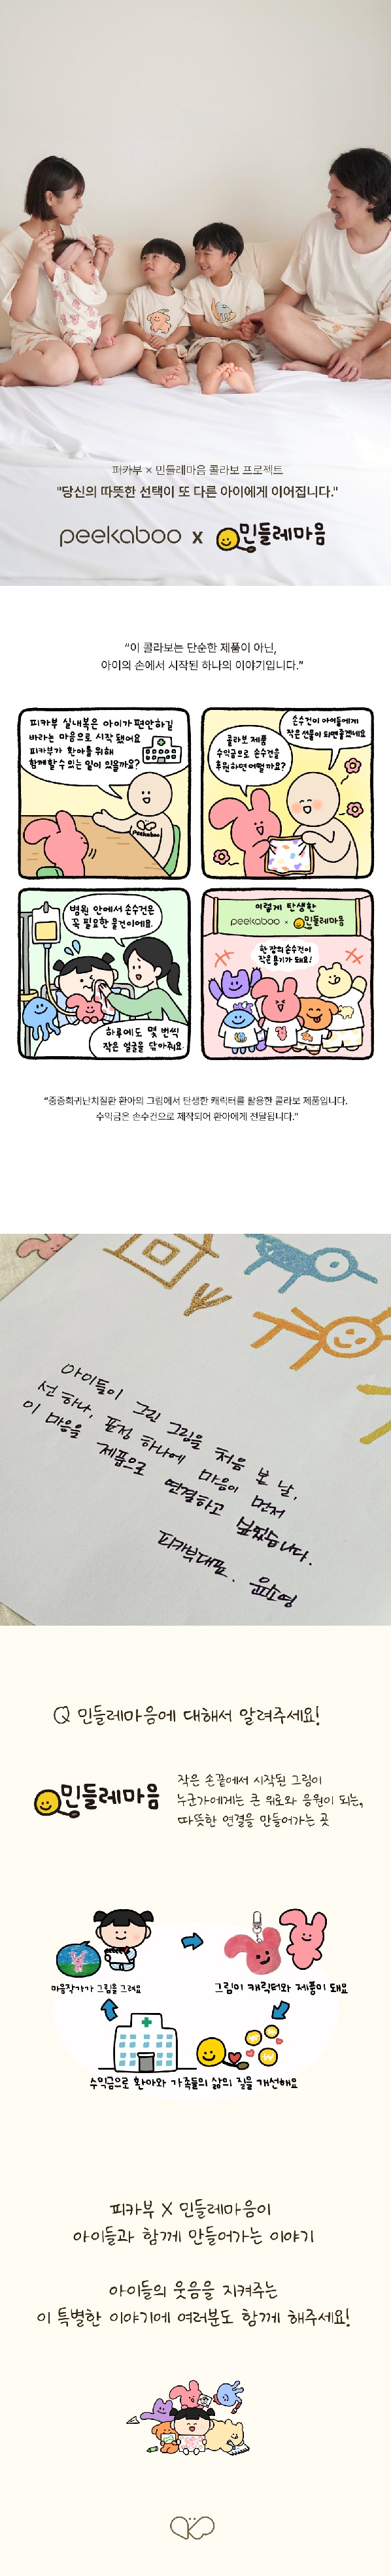 피카부 × 민들레마음 콜라보 프로젝트
"당신의 따뜻한 선택이 또 다른 아이에게 이어집니다."
peekaboo x 민들레마음
“이 콜라보는 단순한 제품이 아닌,
아이의 손에서 시작된 하나의 이야기입니다.”
피카부 실내복은 아이가 편안하길
바라는 마음으로 시작 됐어요
피카부가 환아를 위해
함께할 수 있는 일이 있을까요?
Peekaboo
콜라보 제품
수익금으로 손수건을
후원하면 어떨까요?
손수건이 아이들에게
작은 선물이 되면 좋겠네요
병원 안에서 손수건은
꼭 필요한 물건이에요.
하루에도 몇 번씩
작은 얼굴을 닦아줘요.
이렇게 탄생한
peekaboo × 민들레마음
한 장의 손수건이
작은 용기가 돼요!
“중증희귀난치질환 환아의 그림에서 탄생한 캐릭터를 활용한 콜라보 제품입니다.
수익금은 손수건으로 제작되어 환아에게 전달됩니다.”
아이들이 그린 그림을 처음 본 날,
선 하나, 표정 하나에 마음이 먼저
이 마음을 제품으로 연결하고 싶었습니다.
피카부대표. 윤소영
Q 민들레마음에 대해서 알려주세요!
민들레마음
작은 손끝에서 시작된 그림이
누군가에게는 큰 위로와 응원이 되는,
따뜻한 연결을 만들어가는 곳
마음작가가 그림을 그려요
그림이 캐릭터와 제품이 돼요
수익금으로 환아와 가족들의 삶의 질을 개선해요
피카부 X 민들레마음이
아이들과 함께 만들어가는 이야기
아이들의 웃음을 지켜주는
이 특별한 이야기에 여러분도 함께 해주세요!